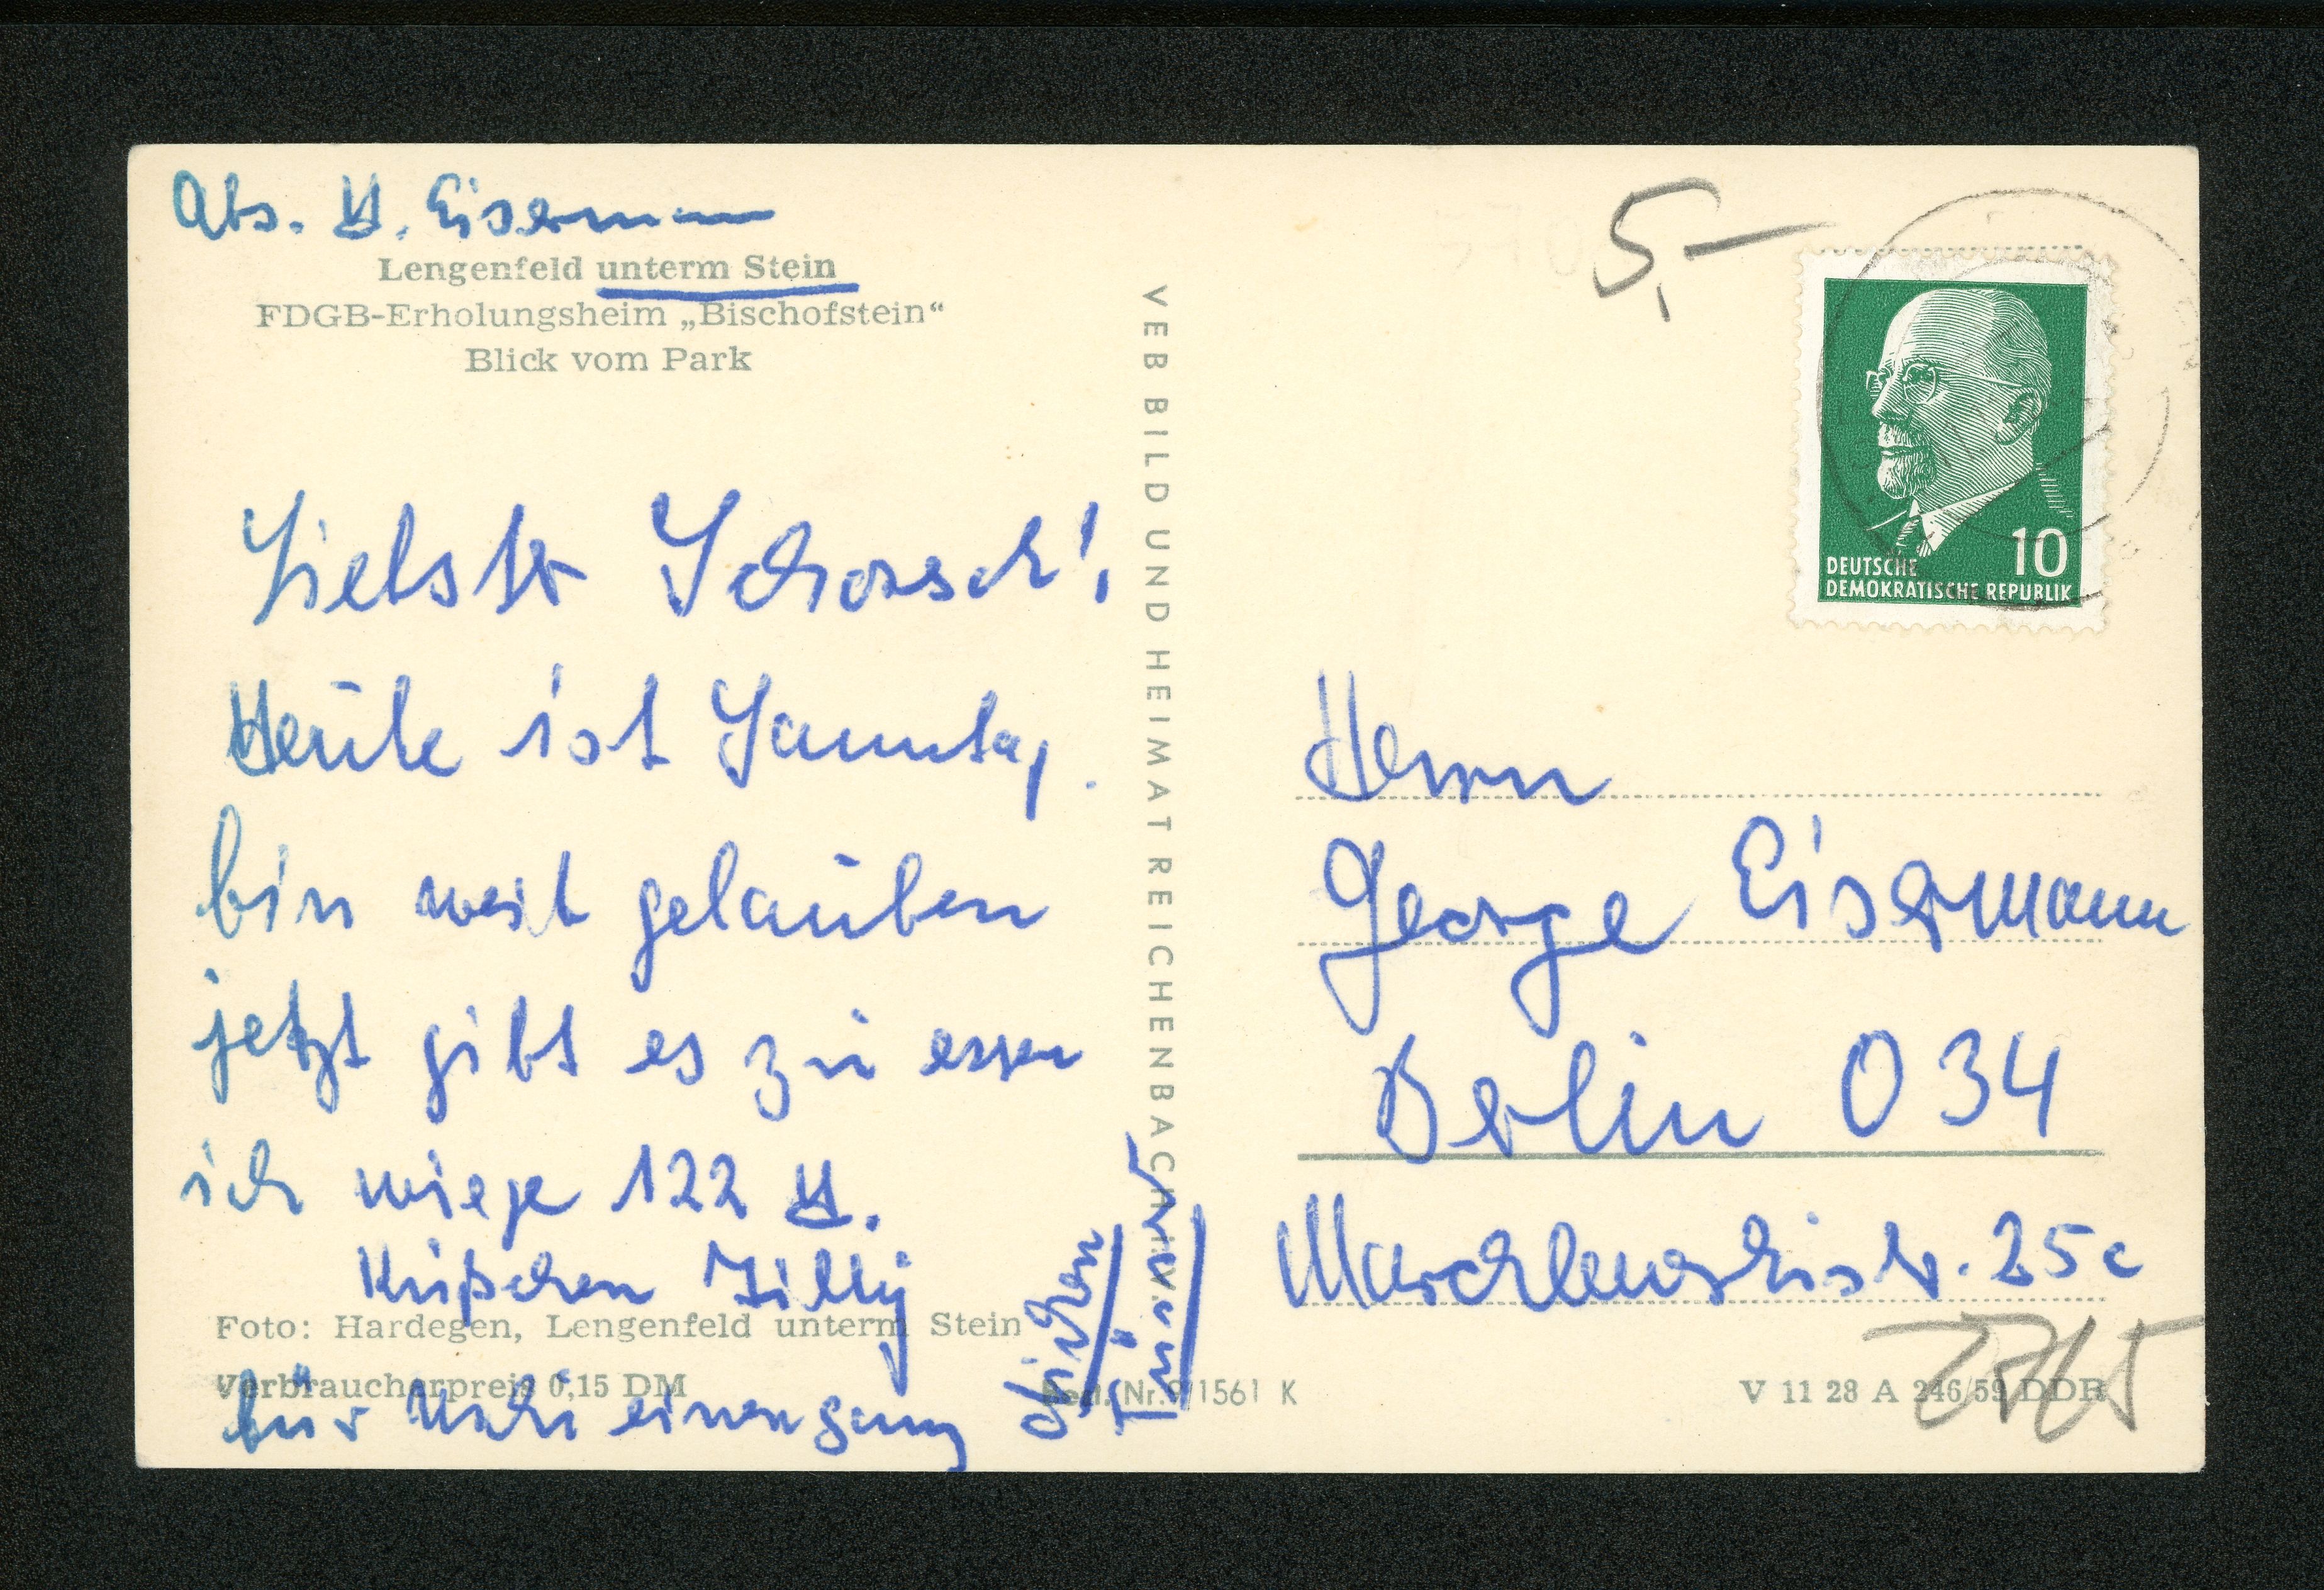 Abs. H. Eisermann
Lengenfeld unterm Stein
FDGB-Erholungsheim „Bischofstein“
Blick vom Park
Liebster Schorsch!
Heute ist Sonntag.
bin weit gelaufen
jetzt gibt es zu essen
ich wiege 122 H.
Küßchen Tilly
Foto: Hardegen, Lengenfeld unterm Stein
Verbraucherpreis 0,15 DM
für Uschi einen ganz
dicken
Best. Nr. 9/1561 K
VEB BILD UND HEIMAT REICHENBACH i. V.
5,-
10
DEUTSCHE
DEMOKRATISCHE REPUBLIK
Herrn
George Eisermann
Berlin O 34
Marchlewskistr. 25c
V 11 28 A 246/59 DDR